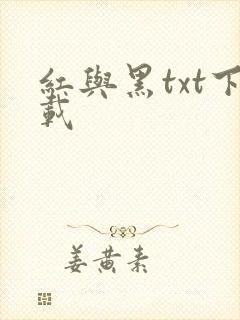 紅與黑txt下
載
姜黄素